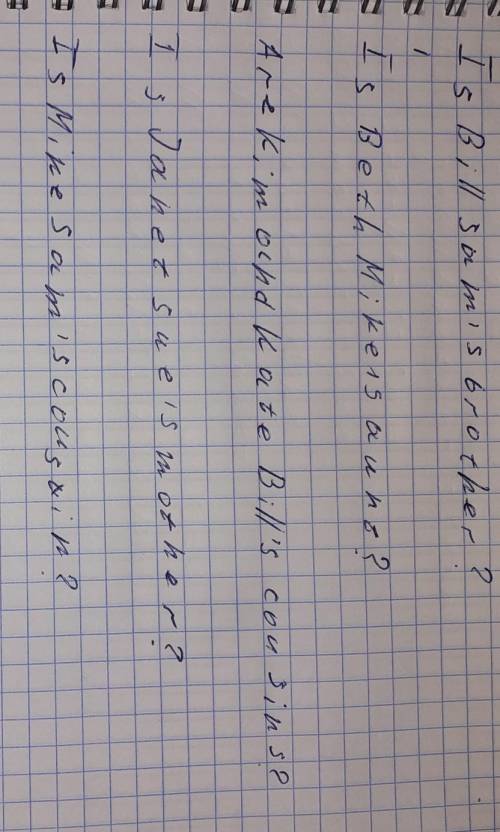 Is Bill Sam's brother?
Is Beth Mike's aunt?
Are Kim and Kate Bill's cousins?
Is Janet Sue's mother?
Is Mike Sam's cousxin?